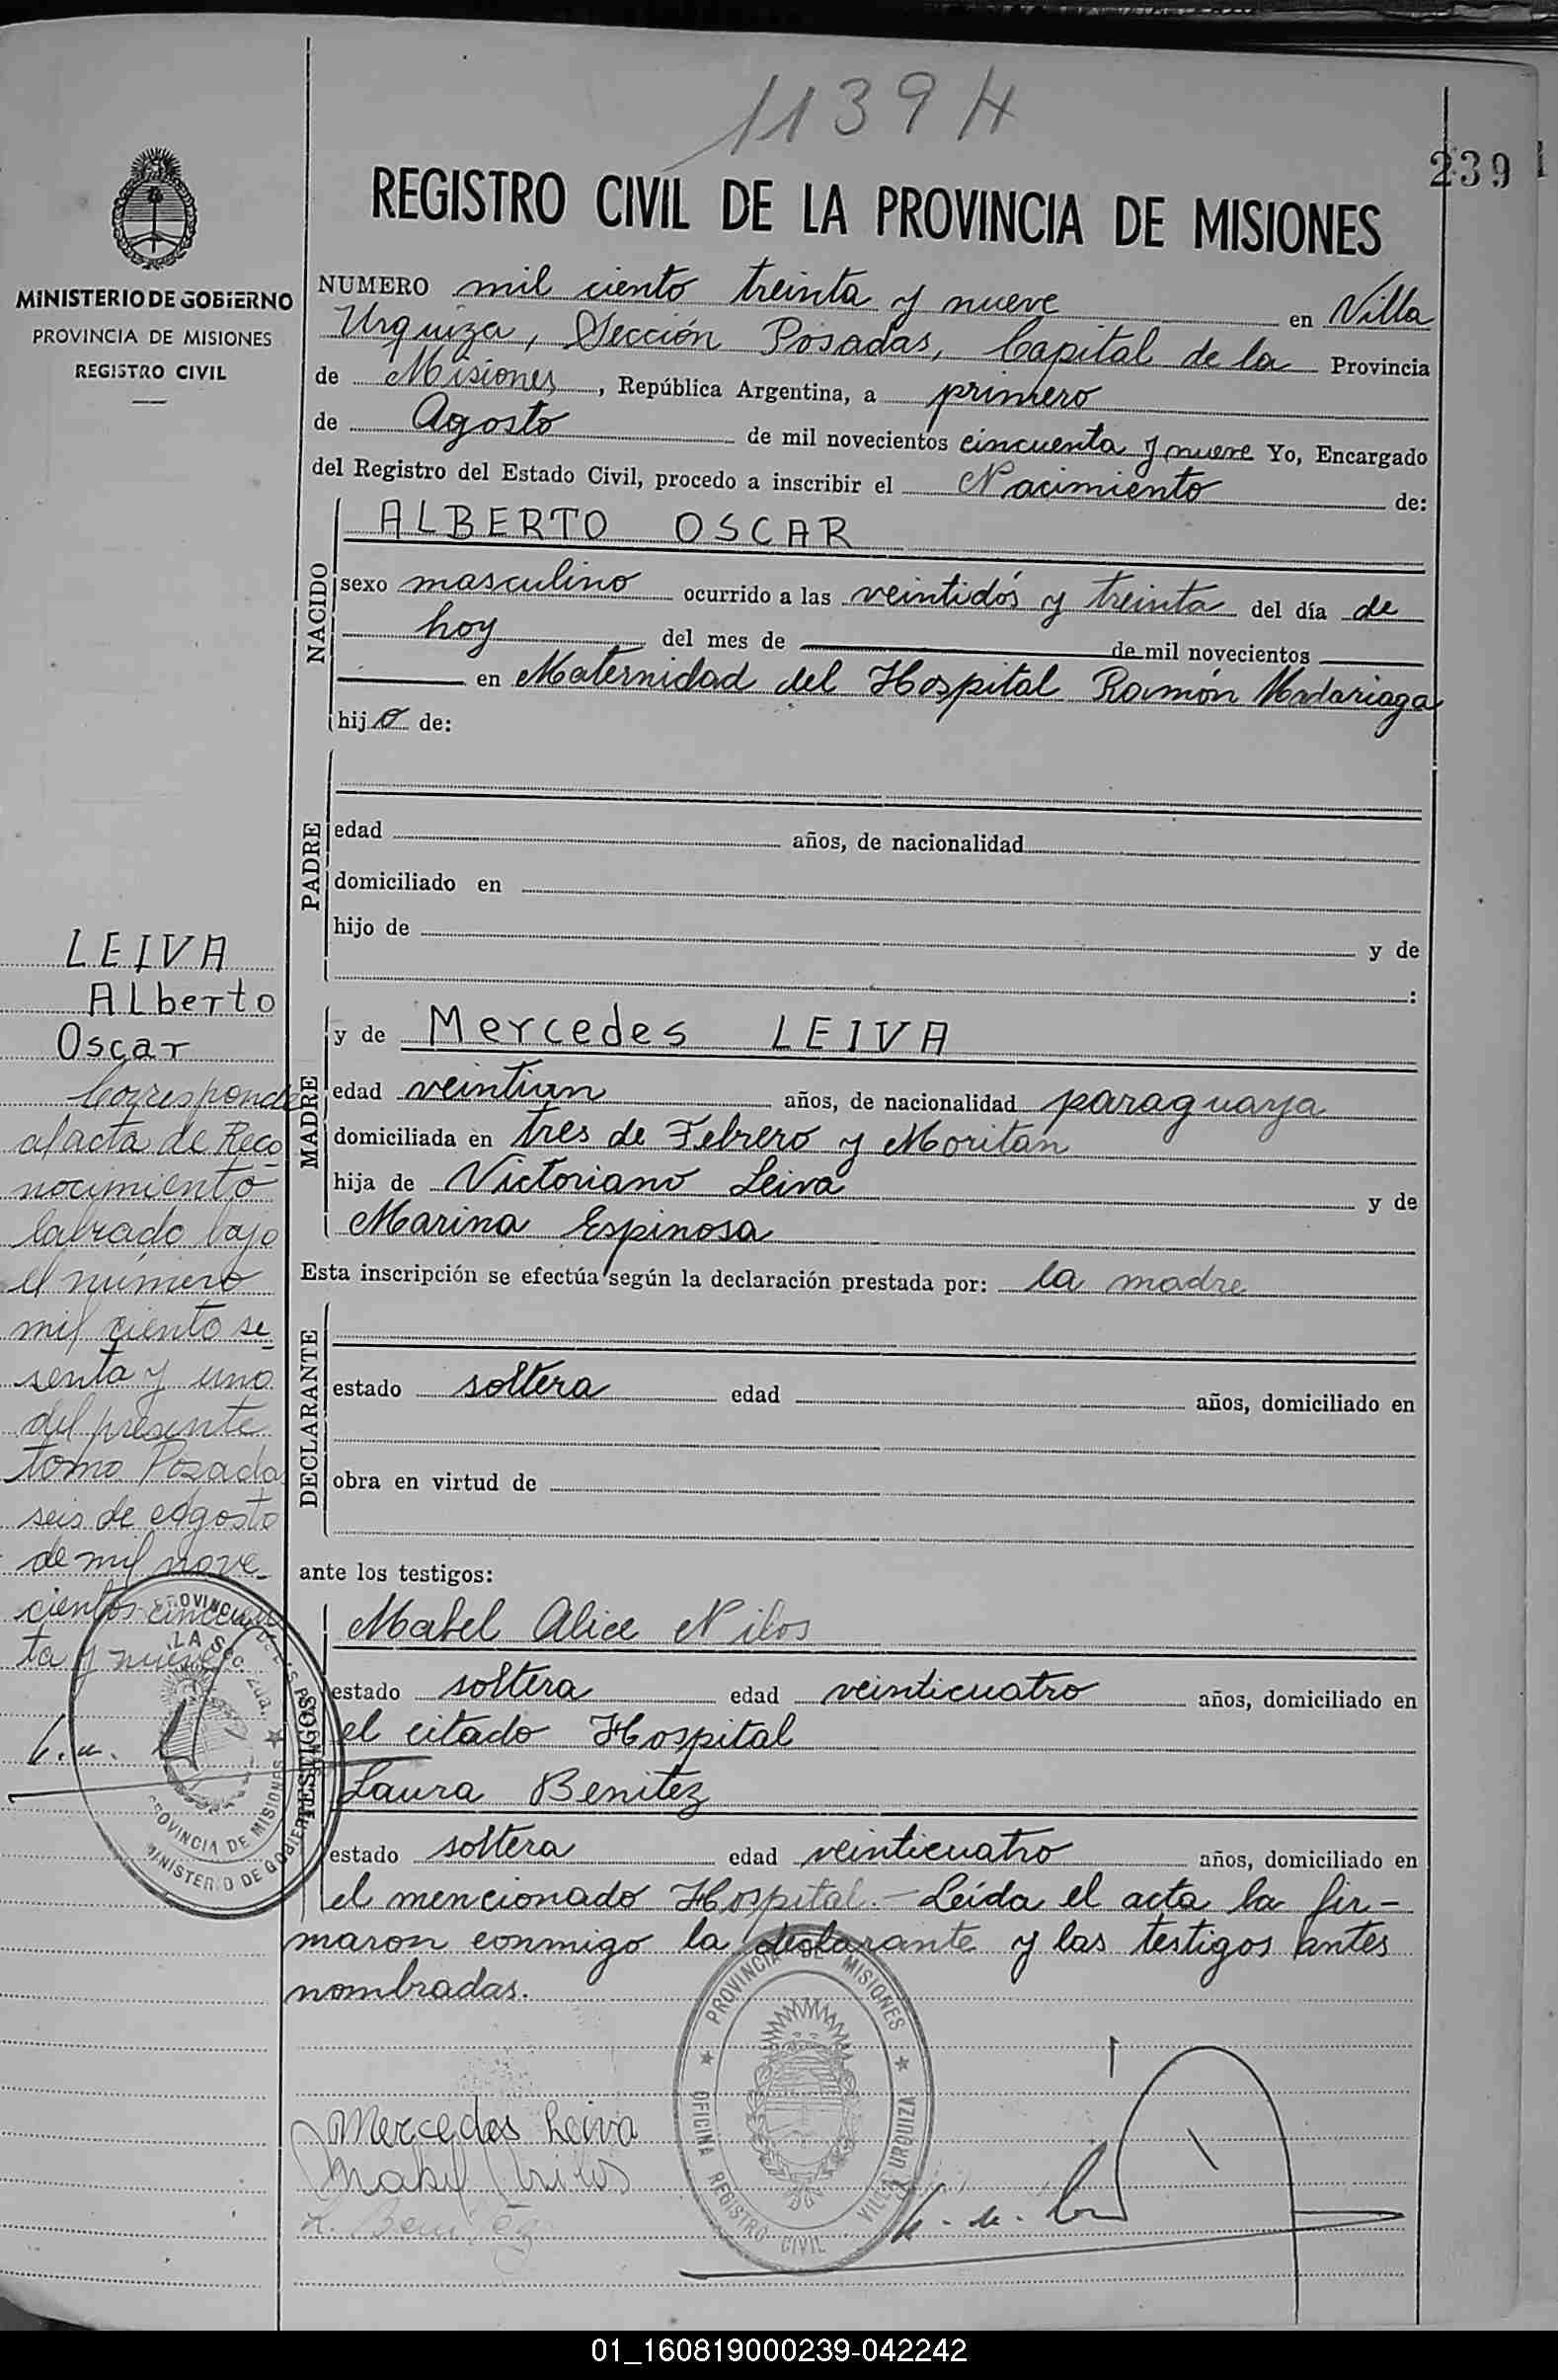 1139 H
239
REGISTRO CIVIL DE LA PROVINCIA DE MISIONES
MINISTERIO DE GOBIERNO
PROVINCIA DE MISIONES
REGISTRO CIVIL
NUMERO mil ciento treinta y nueve en Villa
Urquiza, Sección Posadas, Capital de la Provincia
de Misiones, República Argentina, a primero
de Agosto de mil novecientos cincuenta y nueve Yo, Encargado
del Registro del Estado Civil, procedo a inscribir el Nacimiento de:
NACIDO
ALBERTO OSCAR
sexo masculino ocurrido a las veintidós y treinta del día de
hoy del mes de de mil novecientos
en Maternidad del Hospital Ramón Madariaga
hijo de:
PADRE
edad años, de nacionalidad
domiciliado en
hijo de y de
:
MADRE
y de Mercedes LEIVA
edad veintiun años, de nacionalidad paraguaya
domiciliada en tres de Febrero y Moritan
hija de Victoriano Leiva y de
Marina Espinosa
Esta inscripción se efectúa según la declaración prestada por: la madre
DECLARANTE
estado soltera edad años, domiciliado en
obra en virtud de
ante los testigos:
TESTIGOS
Mabel Alice Nilos
estado soltera edad veinticuatro años, domiciliado en
el citado Hospital
Laura Benitez
estado soltera edad veinticuatro años, domiciliado en
el mencionado Hospital.- Leída el acta la fir-
maron conmigo la declarante y las testigos antes
nombradas.
LEIVA
Alberto
Oscar
Corresponde
al acta de Reco-
nocimiento
labrado bajo
el número
mil ciento se-
senta y uno
del presente
tomo Posadas
seis de Agosto
de mil nove-
cientos cincuen
ta y nueve
PROVINCIA DE MISIONES
MINISTERIO DE GOBIERNO
Mercedes Leiva
Mabel Nilos
L. Benitez
PROVINCIA DE MISIONES
OFICINA REGISTRO CIVIL VILLA URQUIZA
01_160819000239-042242